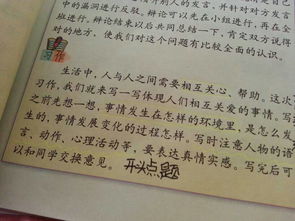 中的漏洞进行反驳。辩论可以先在小组进行,再在全
班进行。辩论结束以后共同总结一下,肯定双方说得
对的地方,使我们对这个问题有比较全面的认识。
习作
生活中,人与人之间需要相互关心、帮助。这次
习作,我们就来写一写体现人们相互关爱的事情。写
之前先想一想,事情发生在怎样的环境里,是怎么发
生的,事情发展变化的过程怎样。写时注意人物的语
言、动作、心理活动等,要表达真情实感。写完后可
以和同学交换意见。开头点题